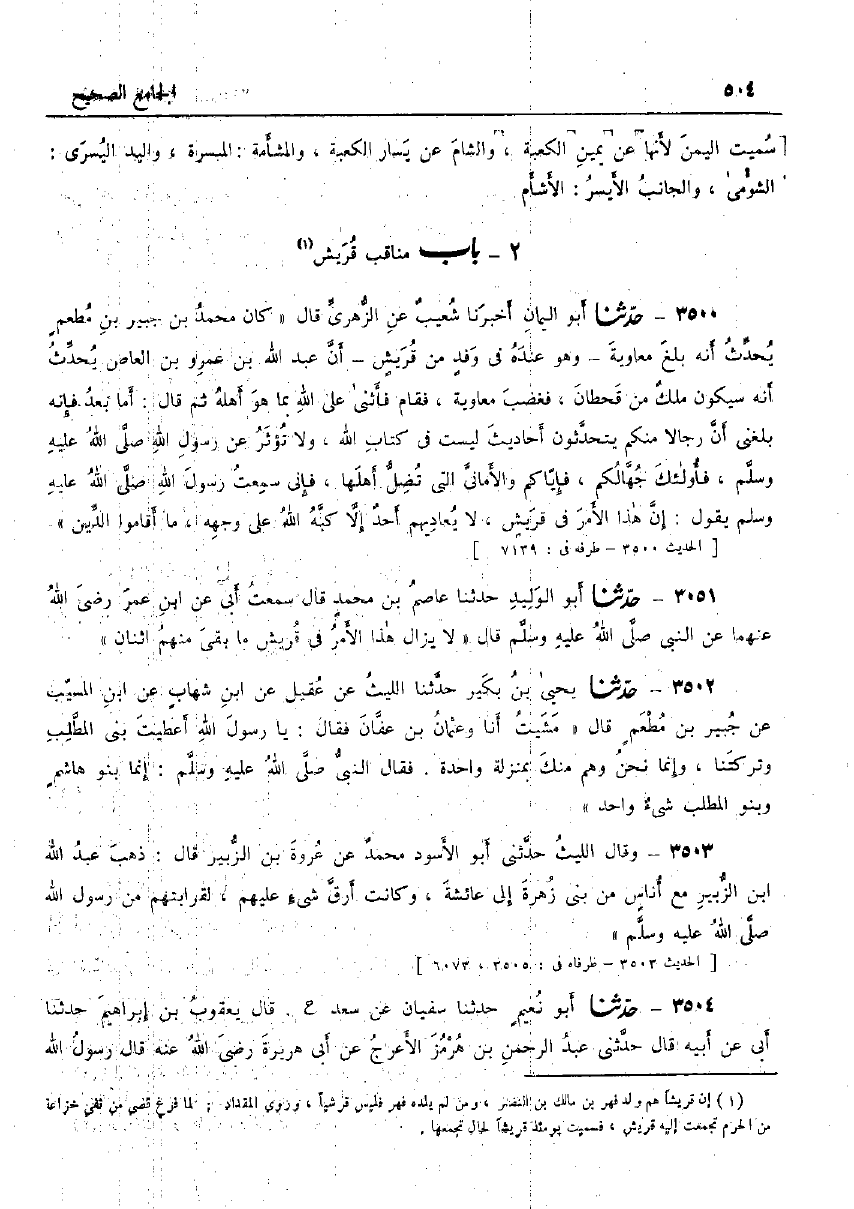 ٥٠٤ الجامع الصحيح
[ سُميت اليمنَ لأَنها عن يمينِ الكعبة ، والشامَ عن يَسار الكعبة ، والمشأَمة : الميسرة ، واليد اليُسرَى :
الشؤْمىٰ ، والجانبُ الأَيسرُ : الأَشأَم
٢ – باب مناقب قُرَيش(١)
٣٥٠٠ – حدّثنا أَبو اليمانِ أَخبرَنا شُعيبٌ عنِ الزُّهرىِّ قال « كان محمدُ بن جبير بنِ مُطعمٍ
يُحدِّثُ أَنه بلغَ معاوية – وهو عندَهُ فى وَفدٍ من قُرَيش – أَنَّ عبد الله بن عمرِو بن العاص يُحدِّثُ
أَنه سيكون ملكٌ من قَحطانَ ، فغضبَ معاوية ، فقام فأَثنىٰ على اللهِ بما هوَ أَهلهُ ثم قال : أَما بعدُ فإِنه
بلغنى أَنَّ رجالا منكم يتحدَّثون أَحاديثَ ليست فى كتابِ الله ، ولا تُؤثَرُ عن رسولِ اللهِ صلَّى اللهُ عليهِ
وسلَّم ، فأُولٰئكَ جُهَّالُكم ، فإِيَّاكم والأَمانىَّ التى تُضِلُّ أَهلَها ، فإِنى سمعتُ رسولَ اللهِ صلَّى اللهُ عليهِ
وسلم يقول : إِنَّ هٰذا الأَمرَ فى قريش ، لا يُعادِيهم أَحدٌ إِلَّا كبَّهُ اللهُ على وجههِ ، ما أَقاموا الدِّين »
[ الحديث ٣٥٠٠ – طرفه فى : ٧١٣٩ ]
٣٠٥١ – حدّثنا أَبو الوَليدِ حدثنا عاصمُ بن محمدٍ قال سمعتُ أَبى عن ابنِ عمرَ رضىَ اللهُ
عنهما عن النبى صلَّى اللهُ عليهِ وسلَّم قال « لا يزال هٰذا الأَمرُ فى قُريش ما بقىَ منهمُ اثنان »
٣٥٠٢ – حدّثنا يحيىٰ بنُ بكَير حدَّثنا الليثُ عن عُقيل عن ابنِ شهابٍ عن ابنِ المسيّب
عن جُبير بن مُطْعَمٍ قال « مَشَيتُ أَنا وعثمانُ بن عفَّانَ فقالَ : يا رسولَ اللهِ أَعطيتَ بنى المطَّلِبِ
وتركتَنا ، وإِنما نحنُ وهم منكَ بمنزلة واحدة . فقال النبىُّ صلَّى اللهُ عليهِ وسلَّم : إِنما بنو هاشمٍ
وبنو المطلب شىءٌ واحد »
٣٥٠٣ – وقال الليثُ حدَّثنى أَبو الأَسودِ محمدٌ عن عُروةَ بنِ الزُّبير قال : ذهبَ عبدُ الله
ابن الزُّبيرِ مع أُناسٍ من بنى زُهرةَ إِلى عائشةَ ، وكانت أَرقَّ شىءٍ عليهم ، لقرابتهم من رسول الله
صلَّى اللهُ عليه وسلَّم »
[ الحديث ٣٥٠٣ – طرفاه فى : ٣٥٠٥ ، ٦٠٧٣ ]
٣٥٠٤ – حدّثنا أَبو نُعَيمٍ حدثنا سفيان عن سعد ح . قال يعقوبُ بن إِبراهيمَ حدثنا
أَبى عن أَبيه قال حدَّثنى عبدُ الرحمنِ بن هُرْمُزَ الأَعرجُ عن أَبى هريرةَ رضىَ اللهُ عنه قال رسولُ الله
(١) إن قريشاً هم ولد فهر بن مالك بن النضر ، ومن لم يلده فهر فليس قرشياً ، وروي المقداد : لما فرغ قصي من نفي خزاعة
من الحرم تجمعت إليه قريش ، فسميت يومئذ قريشاً لحال تجمعها .